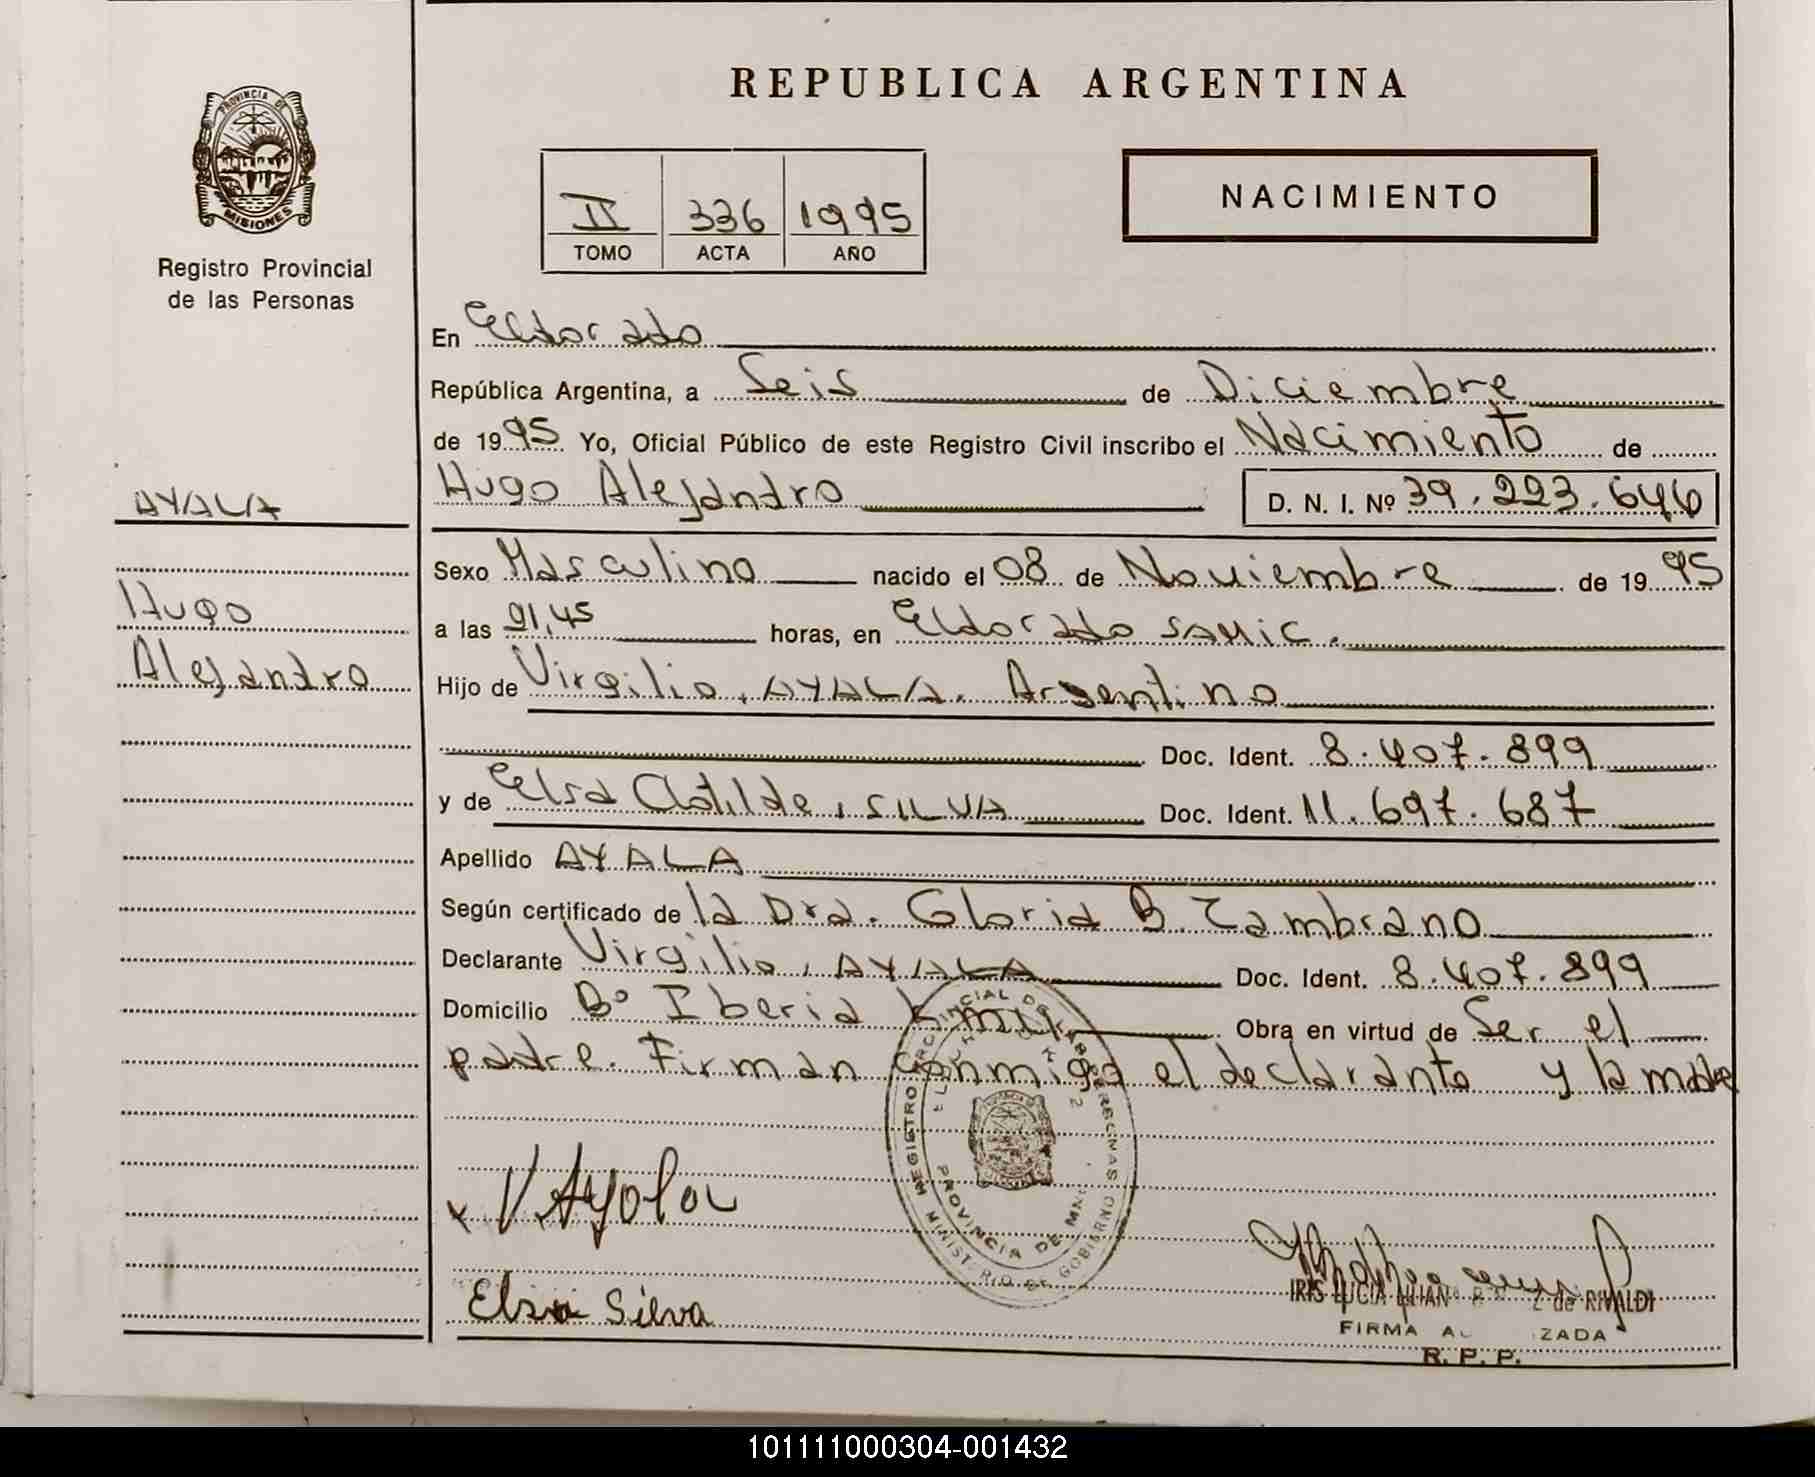 REPUBLICA ARGENTINA
PROVINCIA DE
MISIONES
Registro Provincial
de las Personas
II 336 1995
TOMO ACTA AÑO
NACIMIENTO
En Eldorado
República Argentina, a Seis de Diciembre
de 1995 Yo, Oficial Público de este Registro Civil inscribo el Nacimiento de
Hugo Alejandro D. N. I. Nº 39.223.646
AYALA
Hugo
Alejandro
Sexo Masculino nacido el 08 de Noviembre de 1995
a las 01,45 horas, en Eldorado SAMIC.
Hijo de Virgilio, AYALA. Argentino
Doc. Ident. 8.407.899
y de Elsa Clotilde, SILVA Doc. Ident. 11.697.687
Apellido AYALA
Según certificado de la Dra. Gloria B. Zambrano
Declarante Virgilio, AYALA Doc. Ident. 8.407.899
Domicilio Bº Iberia km Obra en virtud de Ser el
padre. Firman conmigo el declarante y la madre
V Ayala
PROVINCIA DE
MINISTERIO DE GOBIERNO
Elsa Silva
IRIS LUCIA de RIVALDI
FIRMA
R. P. P.
101111000304-001432